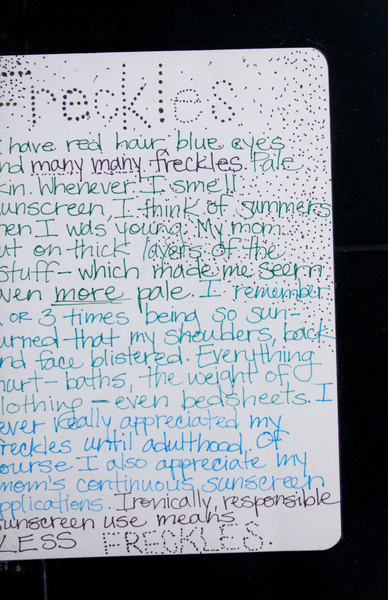 Freckles
I have red hair blue eyes
and many many freckles. Pale
skin. Whenever I smell
sunscreen, I think of summers
when I was young. My mom
put on thick layers of the
stuff - which made me seem
even more pale. I remember
2 OR 3 times being so sun-
burned that my shoulders, back
and face blistered. Everything
hurt - baths, the weight of
clothing - even bedsheets. I
never really appreciated my
freckles until adulthood. Of
course I also appreciate my
mom's continuous sunscreen
applications. Ironically, responsible
sunscreen use means
LESS FRECKLES.